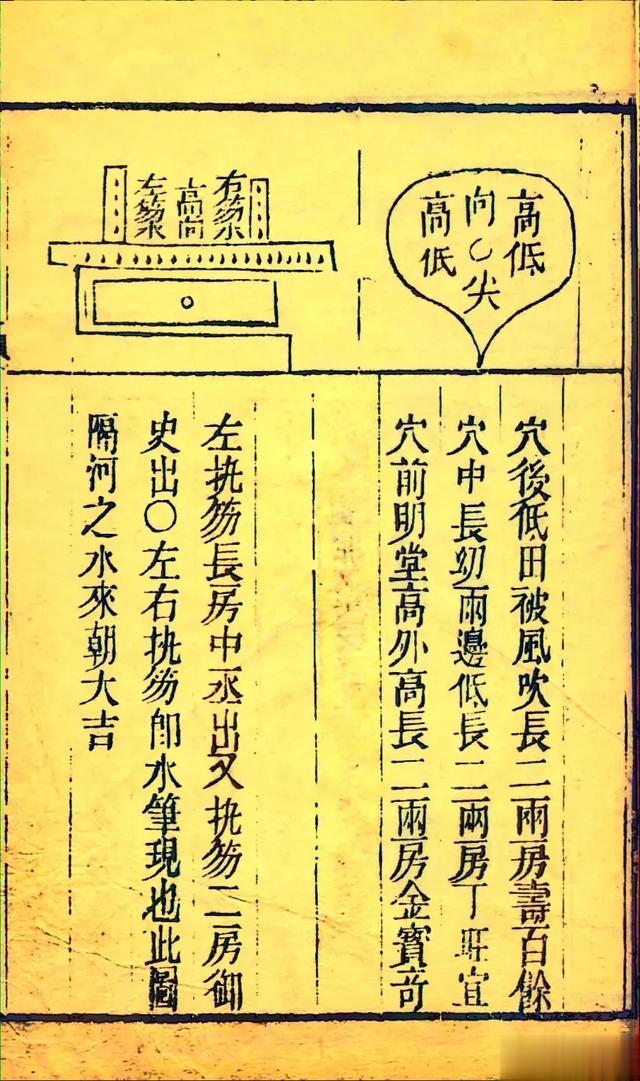 高低
向○尖
高低
右笏水
高向
左笏
穴後低田被風吹長二兩房壽百餘
穴中長幼兩邊低長二兩房丁旺宜
穴前明堂高外高長二兩房金寶奇
左执笏長房中丞出又执笏二房御
史出○左右执笏即水筆現也此圖
隔河之水來朝大吉